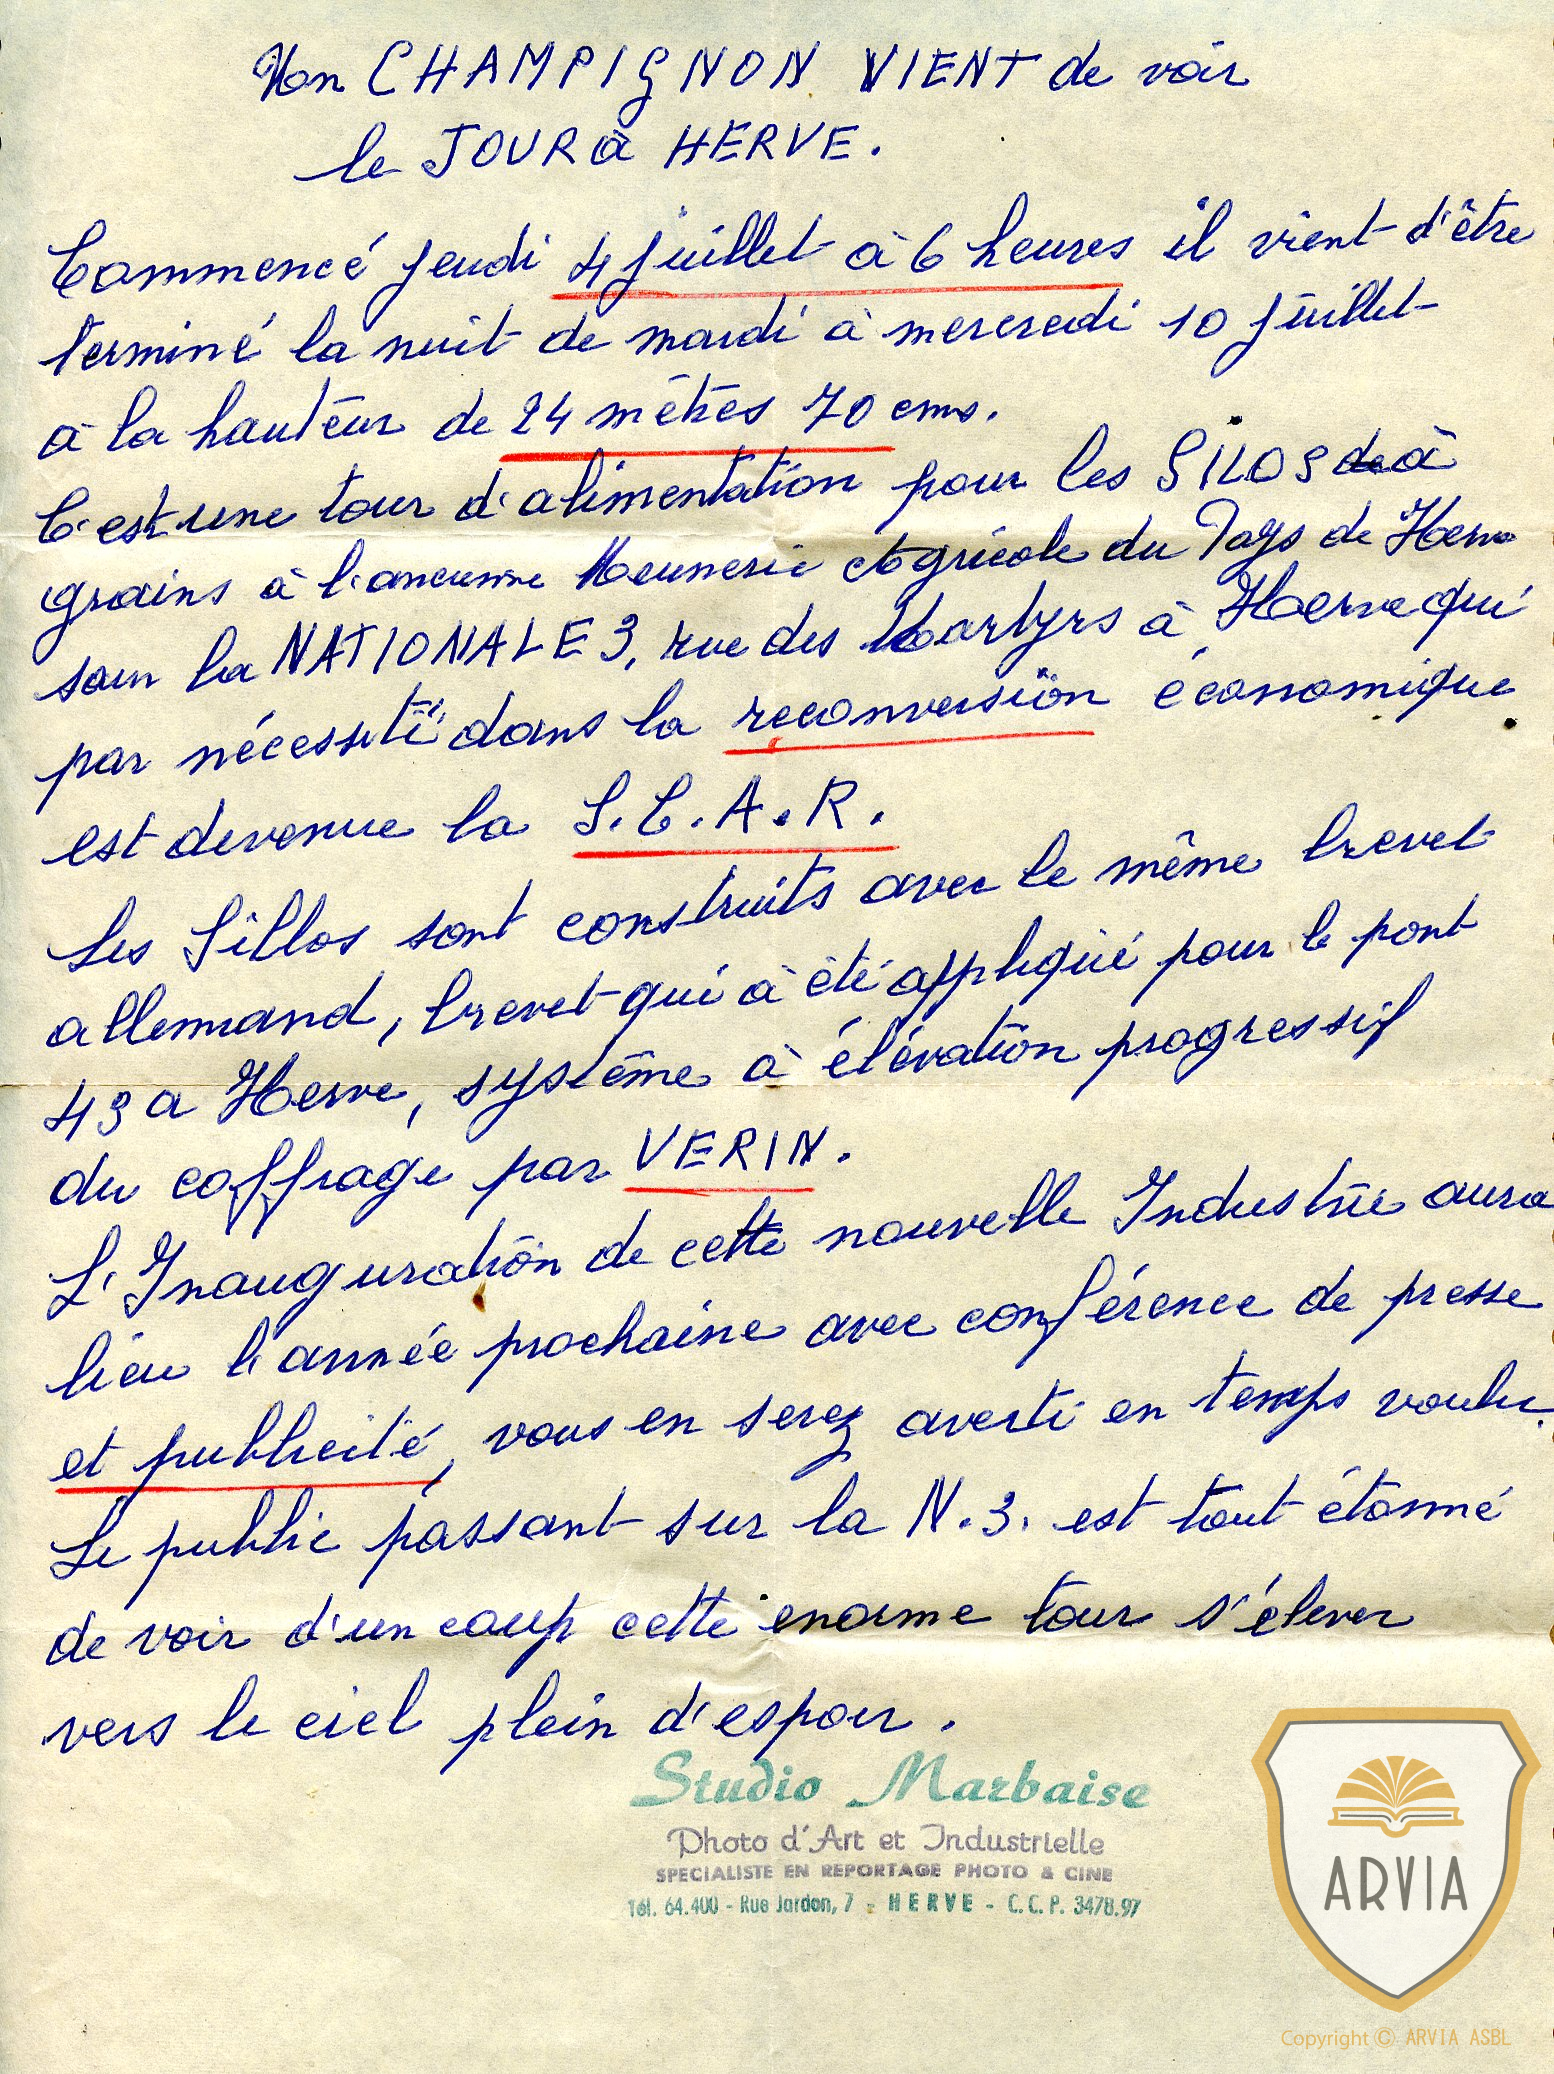 Mon CHAMPIGNON VIENT de voir
le JOUR à HERVE.
Commencé jeudi 4 juillet à 6 heures il vient d'être
terminé la nuit de mardi à mercredi 10 juillet
à la hauteur de 24 mètres 70 cms.
C'est une tour d'alimentation pour les SILOS de à
grains à l'ancienne Meunerie Agricole du Pays de Herve
sur la NATIONALE 3, rue des Martyrs à Herve qui
par nécessité dans la reconversion économique
est devenue la S.C.A.R.
Les Sillos sont construits avec le même brevet
allemand, brevet qui à été appliqué pour le pont
43 a Herve, système à élévation progressif
du coffrage par VERIN.
L'Inauguration de cette nouvelle Industrie aura
lieu l'année prochaine avec conférence de presse
et publicité, vous en serez averti en temps voulu.
Le public passant sur la N.3. est tout étonné
de voir d'un coup cette enorme tour s'élever
vers le ciel plein d'espoir.
Studio Marbaise
Photo d'Art et Industrielle
SPECIALISTE EN REPORTAGE PHOTO & CINE
Tél. 64.400 - Rue Jardon, 7 - HERVE - C.C.P. 3478.97
ARVIA
Copyright © ARVIA ASBL